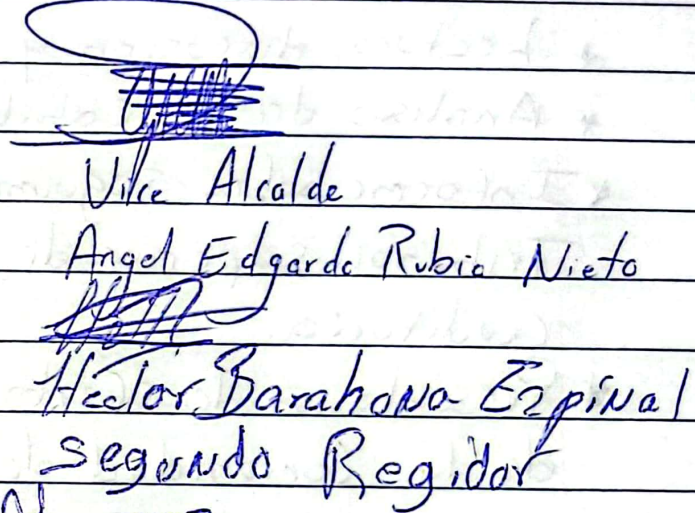 Vice Alcalde
Angel Edgardo Rubio Nieto
Hector Barahona Ezpinal
segundo Regidor